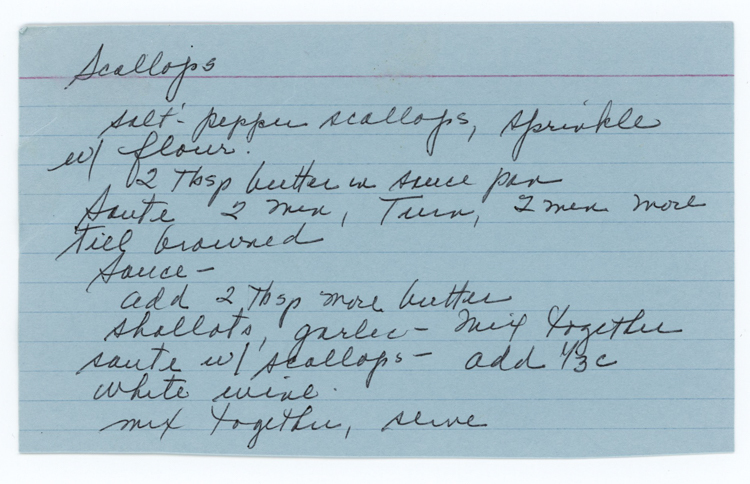 Scallops
salt - pepper scallops, sprinkle
w/ flour.
2 Tbsp butter in sauce pan
Saute 2 min, Turn, 2 min more
till browned
Sauce -
add 2 Tbsp more butter
shallots, garlic - mix together
saute w/ scallops - add 1/3 c
white wine.
mix together, serve